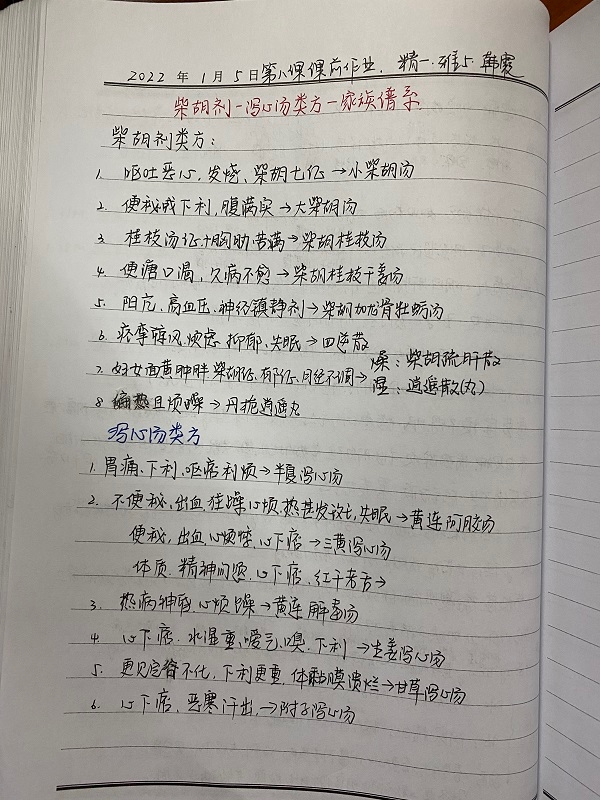 2022 年 1月 5日第八课课前作业. 精一.
柴胡剂-泻心汤类方-家族谱系
柴胡剂类方:
1. 呕吐恶心,发烧、柴胡七证→小柴胡汤
2. 便秘或下利,腹满实→大柴胡汤
3. 桂枝汤证+胸胁苦满→柴胡桂枝汤
4. 便溏口渴,久病不愈→柴胡桂枝干姜汤
5. 阳亢、高血压、神经镇静剂→柴胡加龙骨牡蛎汤
6. 痉挛 焦虑 抑郁、失眠→四逆散
7. 妇女面黄肿胖 柴胡证、郁证、月经不调→燥:柴胡疏肝散
湿:逍遥散(丸)
8. 偏热且烦躁→丹栀逍遥丸
泻心汤类方
1. 胃痛、下利、呕痞利烦→半夏泻心汤
2. 不便秘、出血、狂躁心烦,热甚发, 失眠→黄连阿胶汤
便秘,出血心烦悸、心下痞→三黄泻心汤
体质.精神问题.心下痞,红干老舌→
3. 热病神昏.心烦躁→黄连解毒汤
4. 心下痞.水湿重,嗳气,嗅.下利→生姜泻心汤
5. 更见完谷不化,下利更重,体黏膜溃烂→甘草泻心汤
6. 心下痞,恶寒汗出,→附子泻心汤